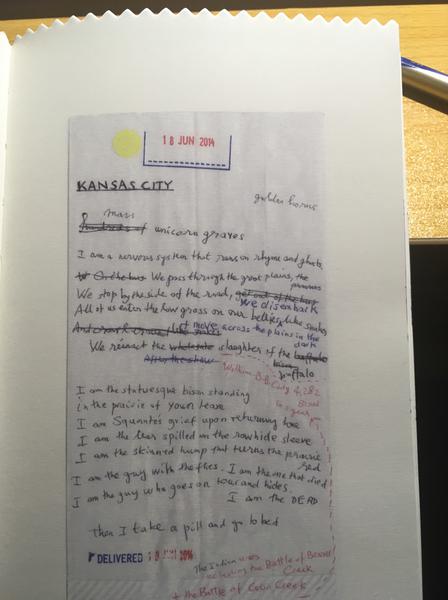 18 JUN 2014
KANSAS CITY
golden horns
8 mass
hundreds of unicorn graves
I am a nervous system that runs on rhyme and ghosts.
We pass through the great plains, the
prairies
We stop by the side of the road, get out of the bus
We disembark
All of us enter the low grass on our bellies like snakes
& move across the plains in the
dark
We reenact the wholesale slaughter of the buffalo
bison
buffalo
After the show
William B.B. Cody 4,282
Bison
I am the statuesque bison standing
in the prairie of your
I am grief upon returning home
I am the beer spilled on the rawhide sleeve
I am the skinned hump that turns the prairie
red
I am the guy with the flies. I am the one that died
I am the guy who goes on tour and hides.
I am the DEAD
Then I take a pill and go to bed
DELIVERED 2014
The Indian wars
including the Battle of Beaver
Creek
+ the Battle of Creek